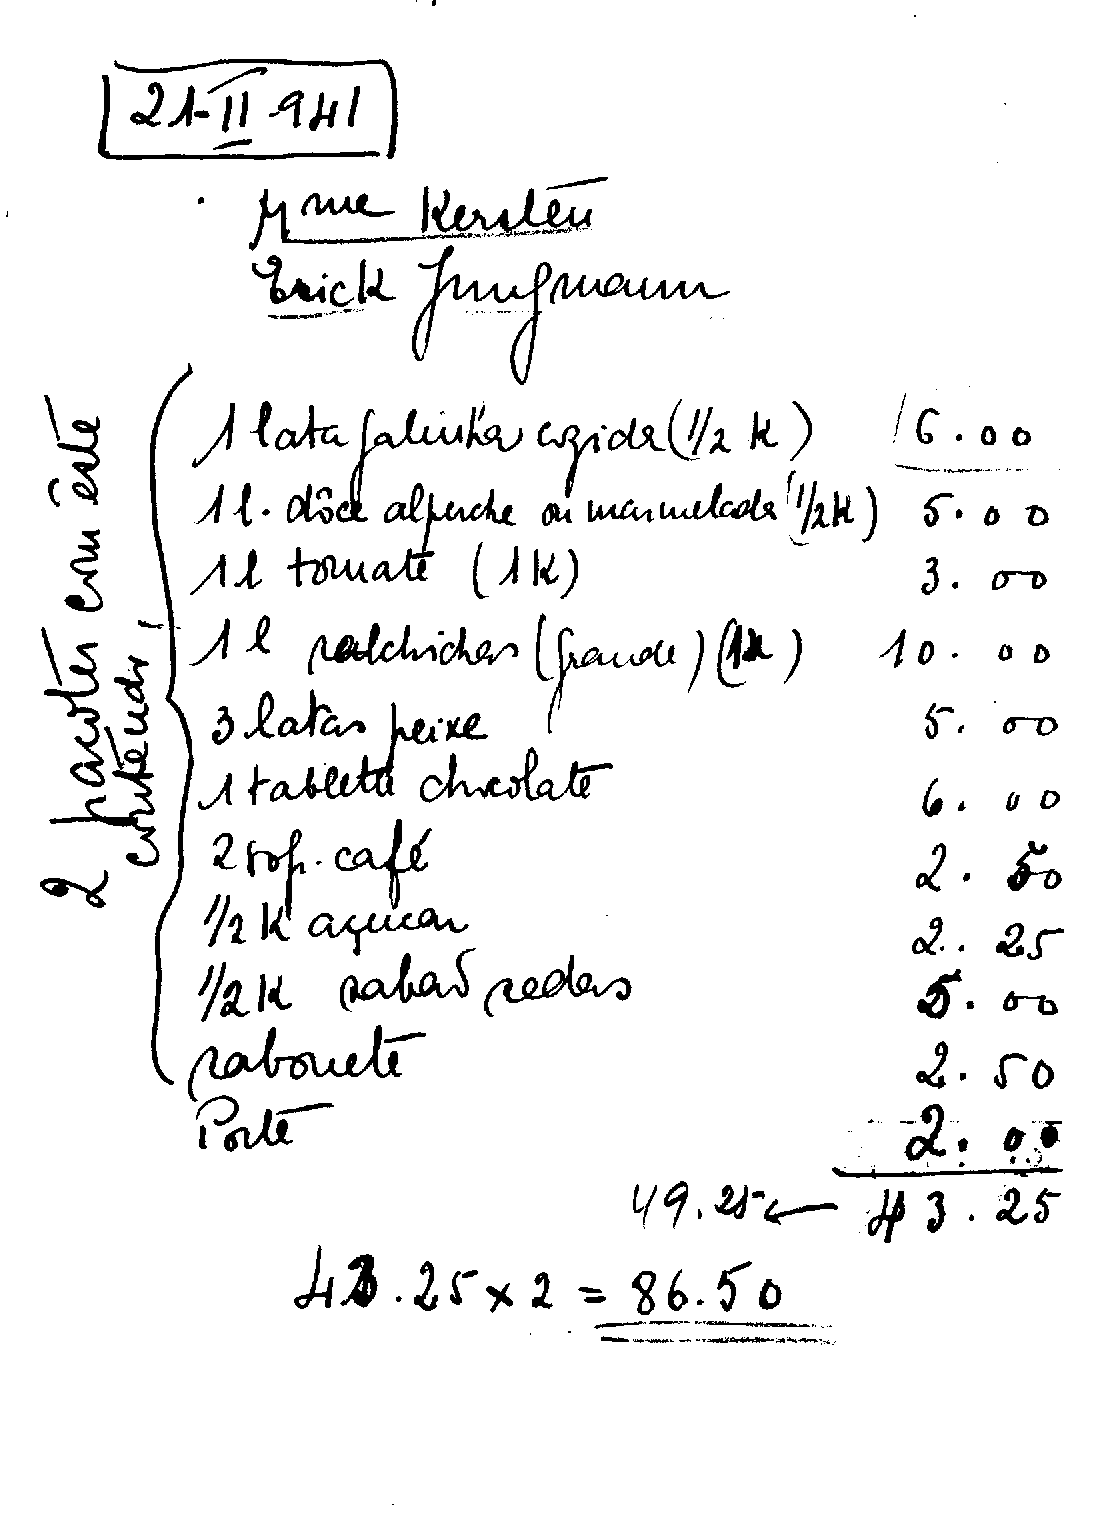 21-II-941
Mme Kersten
Erick Jungmann
2 pacotes com este
conteudo,
1 lata galinha cozida (1/2 K) 6.00
1 l. dôce alperche ou marmelada (1/2 K) 5.00
1 l tomate (1 K) 3.00
1 l salchichas (grande) (1k) 10.00
3 latas peixe 5.00
1 tablette chocolate 6.00
2 sop. café 2.50
1/2 K açucar 2..25
1/2 K sabaõ sedas 5.00
sabonete 2.50
Porte 2.00
49.25 ← 43.25
43.25 x 2 = 86.50